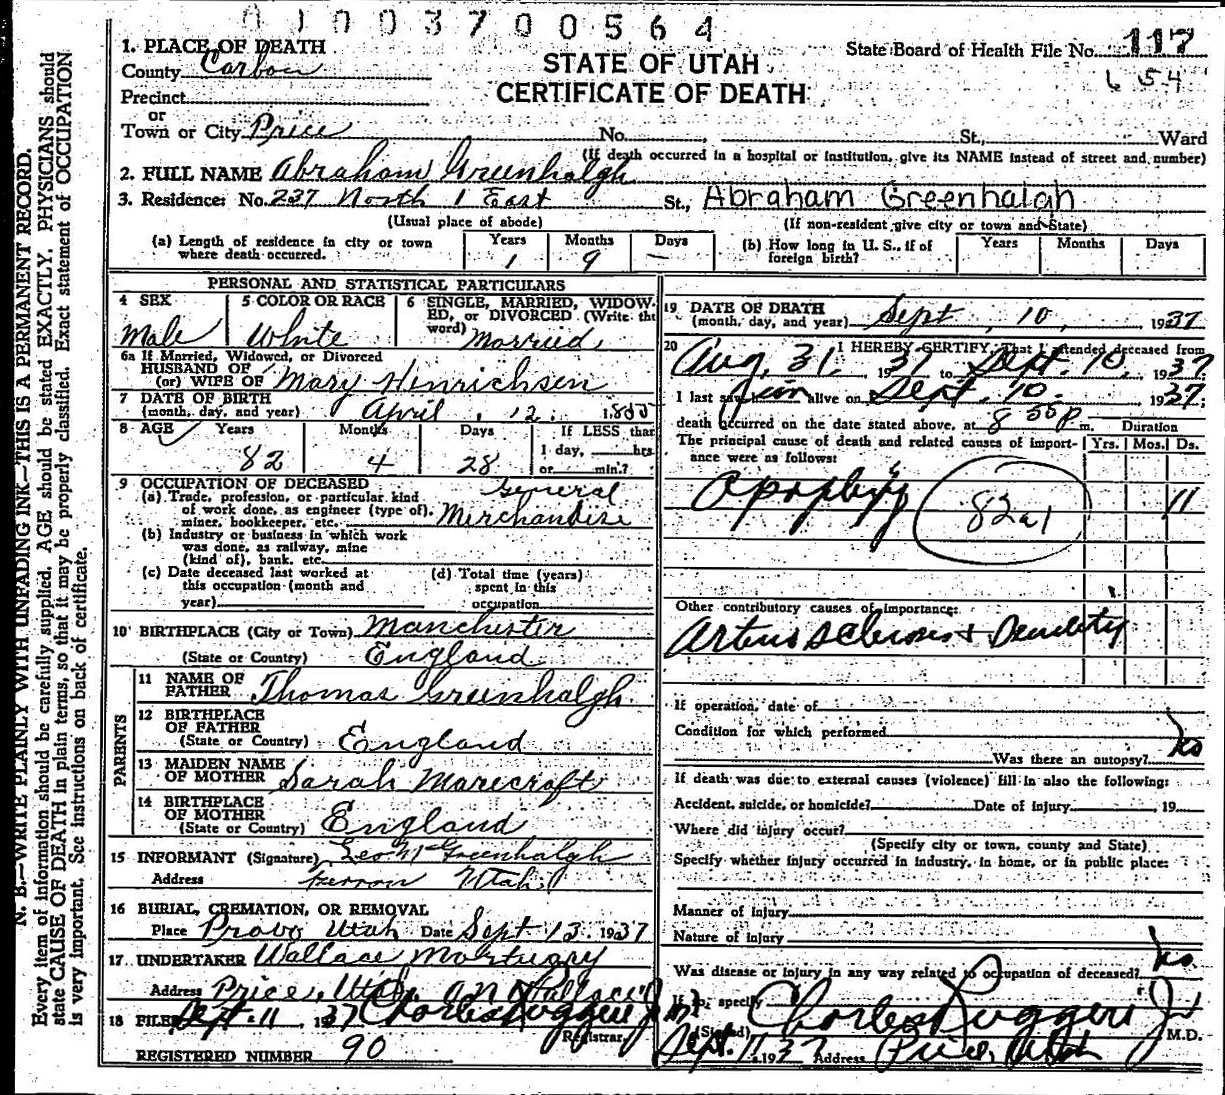 0 1 0 0 3 7 0 0 5 6 4
1. PLACE OF DEATH
County Carbon
Precinct
or
Town or City Price No. St., Ward
STATE OF UTAH
CERTIFICATE OF DEATH
State Board of Health File No. 117
654
(If death occurred in a hospital or institution, give its NAME instead of street and number)
2. FULL NAME Abraham Greenhalgh
3. Residence: No. 237 North 1 East St., Abraham Greenhalgh
(Usual place of abode) (If non-resident give city or town and State)
(a) Length of residence in city or town where death occurred. Years 1 Months 9 Days —
(b) How long in U. S., if of foreign birth? Years Months Days
PERSONAL AND STATISTICAL PARTICULARS
4 SEX Male
5 COLOR OR RACE White
6 SINGLE, MARRIED, WIDOWED, or DIVORCED (Write the word) Married
6a If Married, Widowed, or Divorced
HUSBAND OF
(or) WIFE OF Mary Hinrichsen
7 DATE OF BIRTH
(month, day, and year) April 12, 1855
8 AGE Years 82 Months 4 Days 28 If LESS than 1 day, hrs or min.?
9 OCCUPATION OF DECEASED
(a) Trade, profession, or particular kind of work done, as engineer (type of), miner, bookkeeper, etc. General Merchandise
(b) Industry or business in which work was done, as railway, mine (kind of), bank, etc.
(c) Date deceased last worked at this occupation (month and year)
(d) Total time (years) spent in this occupation
10 BIRTHPLACE (City or Town) Manchester
(State or Country) England
PARENTS
11 NAME OF FATHER Thomas Greenhalgh
12 BIRTHPLACE OF FATHER
(State or Country) England
13 MAIDEN NAME OF MOTHER Sarah Marecroft
14 BIRTHPLACE OF MOTHER
(State or Country) England
15 INFORMANT (Signature) Leo M Greenhalgh
Address Ferron Utah
16 BURIAL, CREMATION, OR REMOVAL
Place Provo Utah Date Sept 13 1937
17 UNDERTAKER Wallace Mortuary
Address Price, Utah.
18 FILED Sept. 11, 1937 Charles Ruggeri Jr
Registrar.
REGISTERED NUMBER 90
19 DATE OF DEATH
(month, day, and year) Sept, 10, 1937
20 I HEREBY CERTIFY, That I attended deceased from
Aug, 31. 1937 to Sept. 10. 1937
I last saw him alive on Sept. 10. 1937
death occurred on the date stated above, at 8 35 P m. Duration
The principal cause of death and related causes of importance were as follows: Yrs. Mos. Ds.
Apoplexy 82a1 11
Other contributory causes of importance:
Arteriosclerosis &
If operation, date of
Condition for which performed
Was there an autopsy? No
If death was due to external causes (violence) fill in also the following:
Accident, suicide, or homicide? Date of injury 19
Where did injury occur?
(Specify city or town, county and State)
Specify whether injury occurred in industry, in home, or in public place:
Manner of injury
Nature of injury
Was disease or injury in any way related to occupation of deceased? No
If so, specify
(Signed) Charles Ruggeri Jr M.D.
Sept. 11. 1937 Address Price, Utah
N. B.—WRITE PLAINLY WITH UNFADING INK—THIS IS A PERMANENT RECORD.
Every item of information should be carefully supplied. AGE should be stated EXACTLY. PHYSICIANS should
state CAUSE OF DEATH in plain terms, so that it may be properly classified. Exact statement of OCCUPATION
is very important. See instructions on back of certificate.